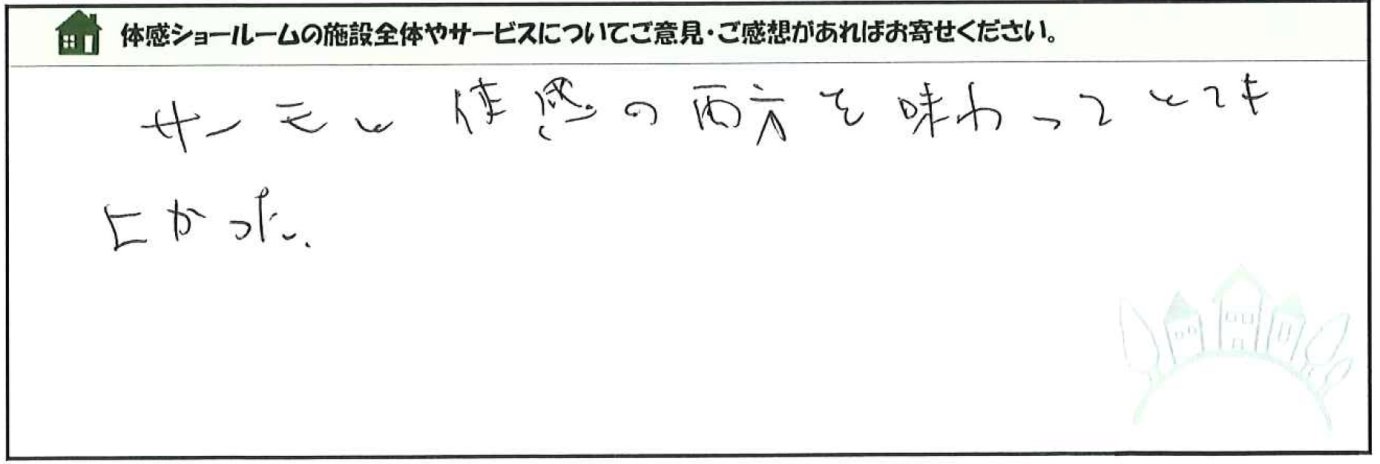 体感ショールームの施設全体やサービスについてご意見・ご感想があればお寄せください。
サーモと体感の両方を味わってとても
よかった。